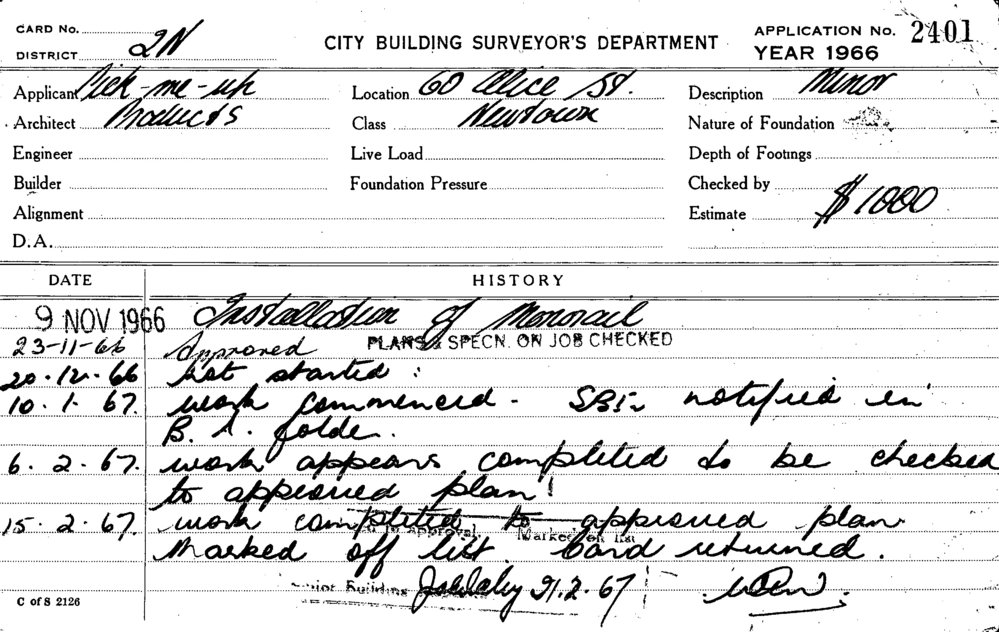 CARD No.
DISTRICT 2N
CITY BUILDING SURVEYOR'S DEPARTMENT
APPLICATION No. 2401
YEAR 1966
Applicant Pick-me-up
Location 60 Alice St.
Description Minor
Architect Products
Class Newtown
Nature of Foundation
Engineer
Live Load
Depth of Footings
Builder
Foundation Pressure
Checked by
Alignment
Estimate $1000
D.A.
DATE HISTORY
9 NOV 1966 Installation of Monorail
23-11-66 Approved PLANS & SPECN. ON JOB CHECKED
20.12.66 Not started :
10.1.67. work commenced - notified in
B. folder.
6.2.67. work appears completed to be checked
to approved plan!
15.2.67. work completed to approved plan.
approval Marked off list
Marked off list card returned.
Building 21.2.67
C of S 2126